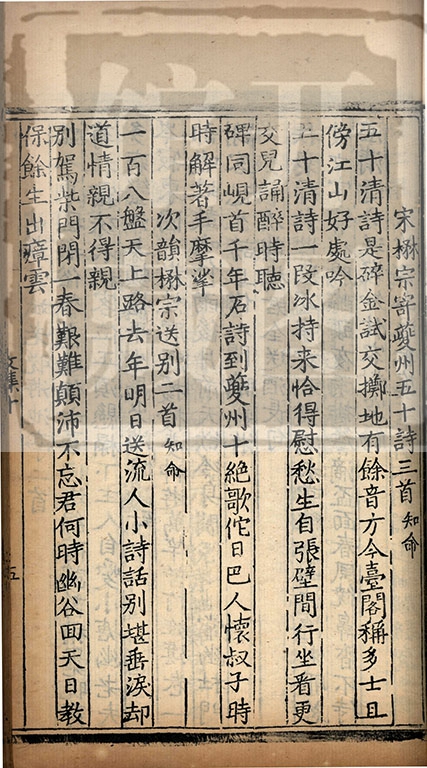 宋楙宗寄夔州五十詩三首知命
五十清詩是碎金試交擲地有餘音方今臺閣稱多士且
傍江山好處吟
五十清詩一段冰持来恰得慰愁生自張壁間行坐看更
交兒誦醉時聽
碑同峴首千年石詩到夔州十絶歌佗日巴人懷叔子時
時解著手摩挲
次韻楙宗送别二首知命
一百八盤天上路去年明日送流人小詩話别堪垂淚却
道情親不得親
别駕柴門閉一春艱難顛沛不忘君何時幽谷回天日教
保餘生出瘴雲
文集十
五